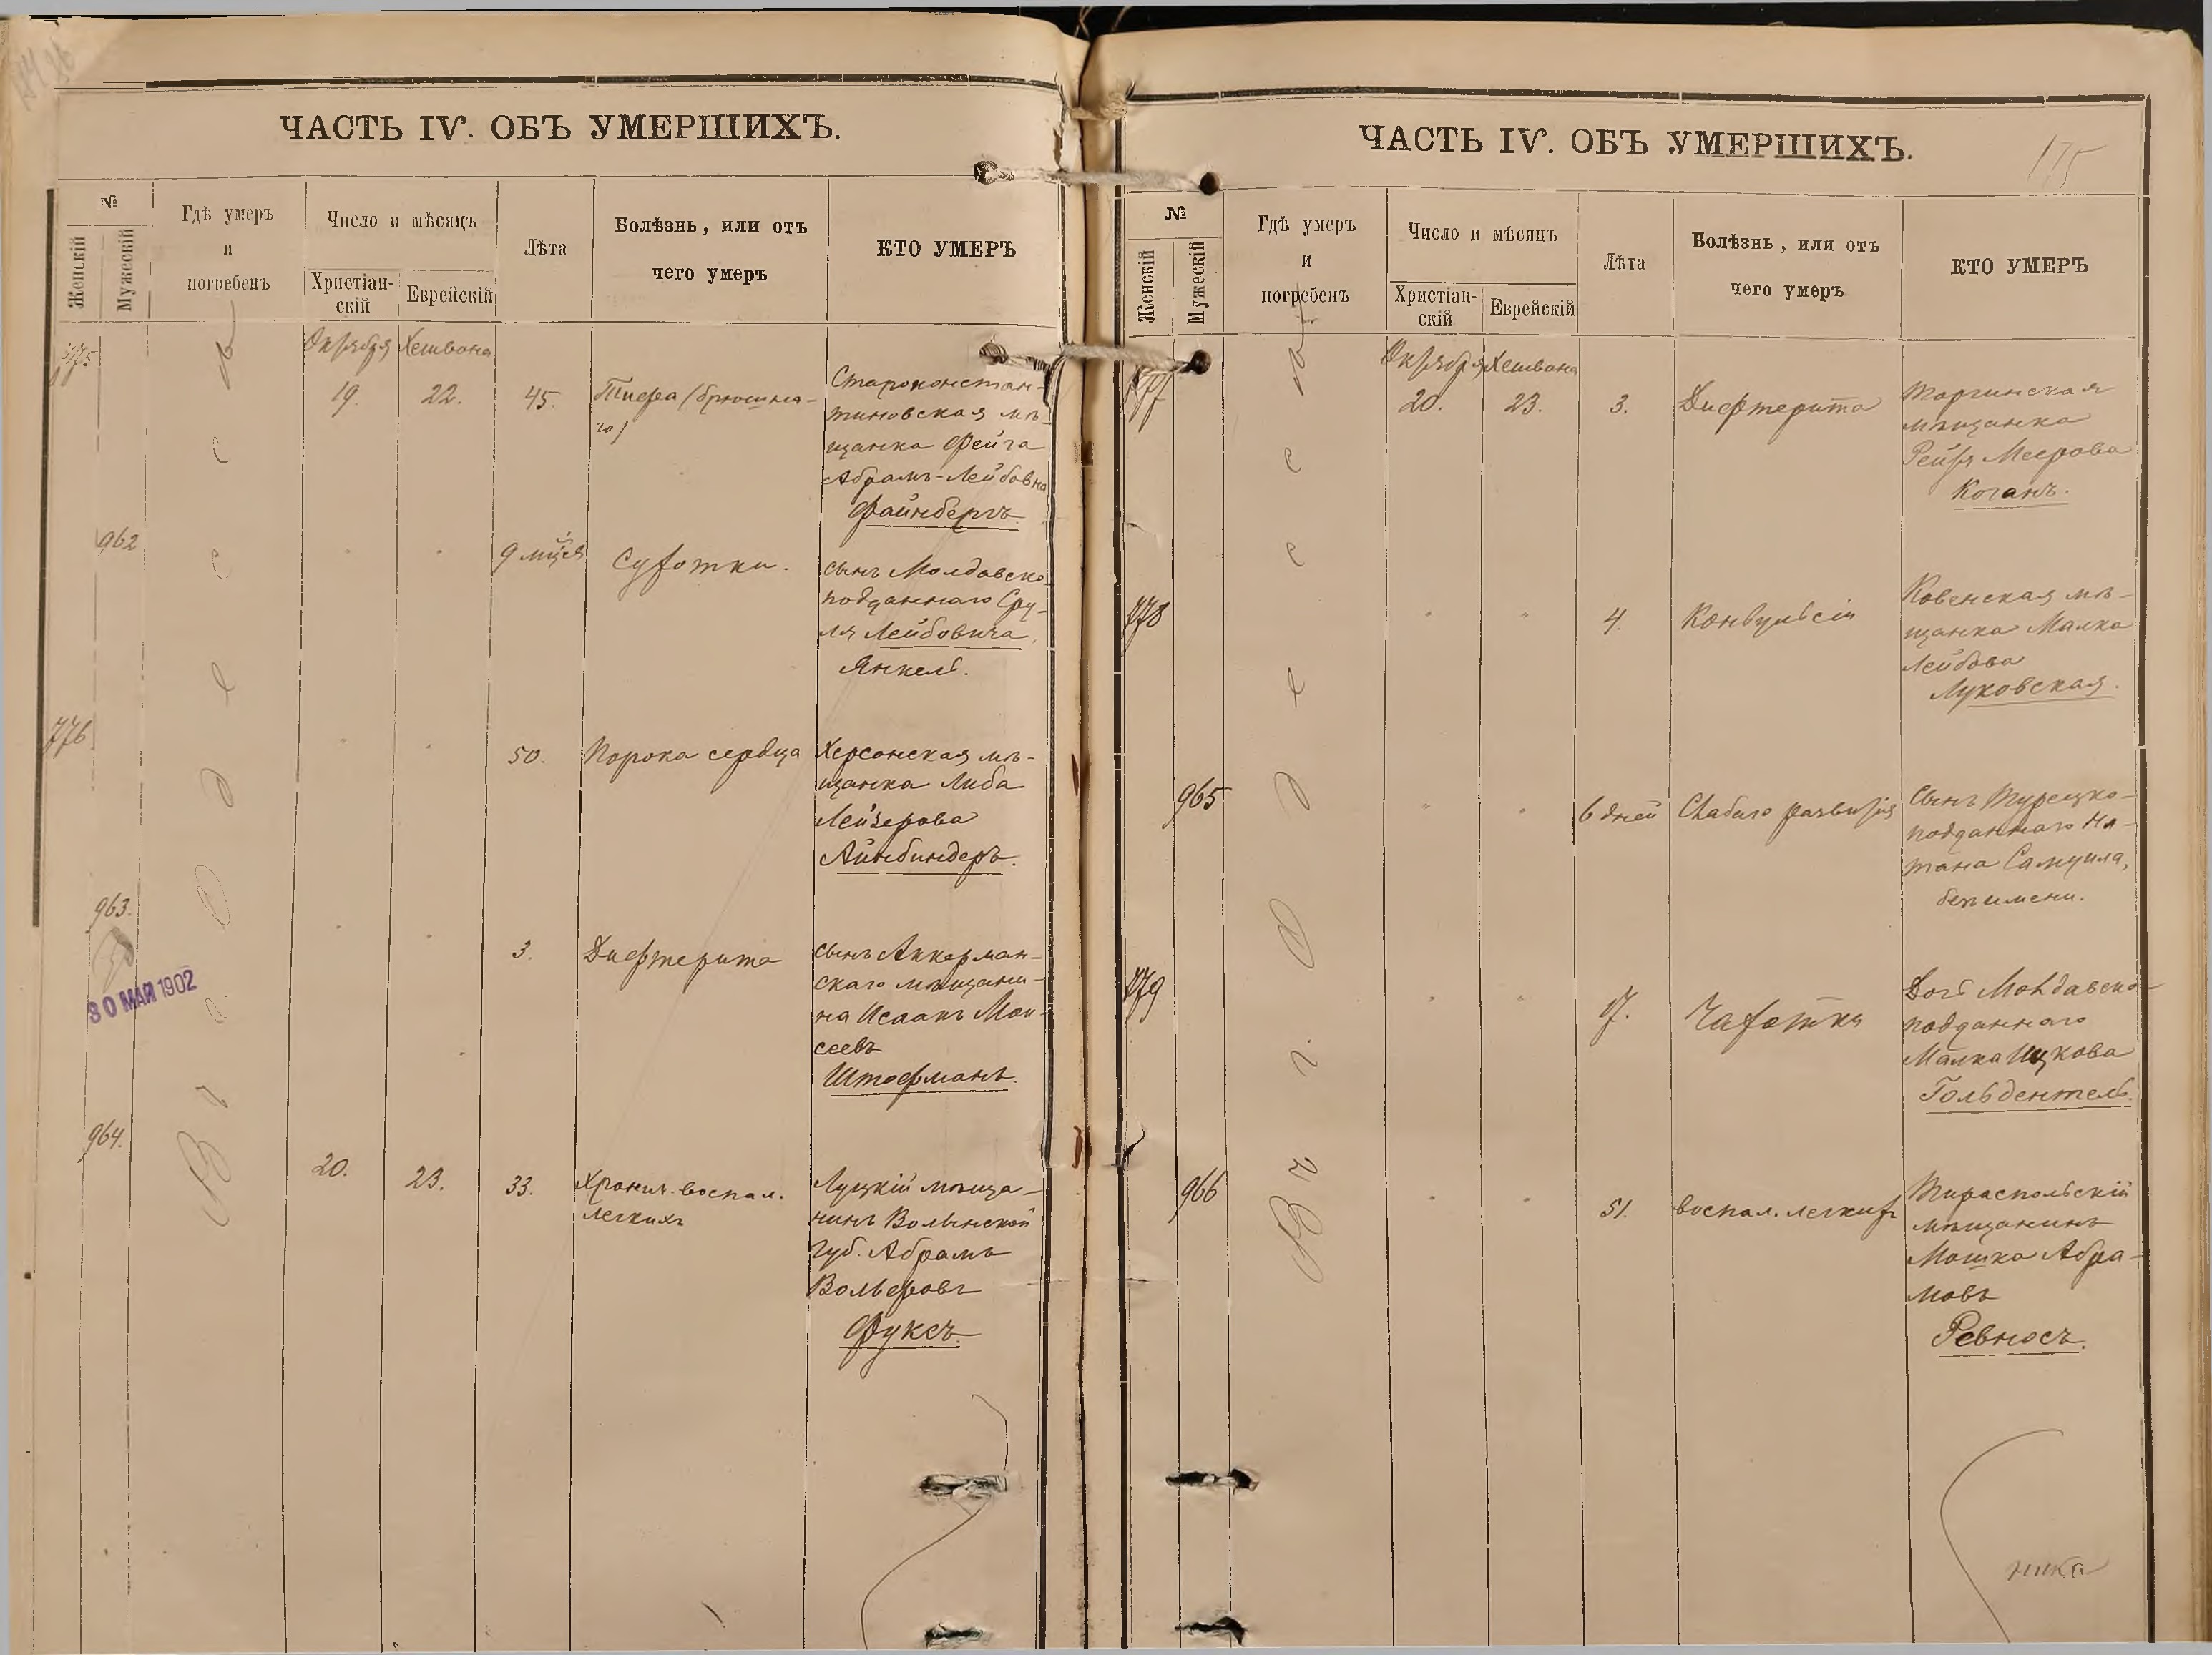 ЧАСТЬ IV. ОБЪ УМЕРШИХЪ.
№
Женскій
Мужескій
Гдѣ умеръ
и
погребенъ
Число и мѣсяцъ
Христіан-
скій
Еврейскій
Лѣта
Болѣзнь, или отъ
чего умеръ
КТО УМЕРЪ
Въ г. Одессѣ
Октября Хешвана
775
19. 22. 45.
Тифа (брюшна-
го)
Староконстан-
тиновская мѣ-
щанка Фейга
Абрамъ-Лейбовна
Файнбергъ.
962
" " 9 мцев
Сухотки.
сынъ Молдавско-
подданнаго Сру-
ля Лейбовича,
Янкель.
776
" " 50.
Порока сердца
Херсонская мѣ-
щанка Либа
Лейзерова
Айнбиндеръ.
963.
" " 3.
Дифтерита
сынъ Аккерман-
скаго мѣщани-
на Исаакъ Мои-
сеевъ
Штофманъ.
30 МАЯ 1902
964.
20. 23. 33.
Хронич. воспал.
легкихъ
Луцкій мѣща-
нинъ Волынской
губ. Абрамъ
Вольфовъ
Фуксъ.
ЧАСТЬ IV. ОБЪ УМЕРШИХЪ.
175
№
Женскій
Мужескій
Гдѣ умеръ
и
погребенъ
Число и мѣсяцъ
Христіан-
скій
Еврейскій
Лѣта
Болѣзнь, или отъ
чего умеръ
КТО УМЕРЪ
Въ г. Одессѣ
Октября Хешвана
777
20. 23. 3.
Дифтерита
мѣщанка
Меерова
Коганъ.
778
" " 4.
Конвульсіи
Ковенская мѣ-
щанка Малка
Лейбова
Луковская.
965
" " 6 дней
Слабаго развитія
Сынъ Турецко-
подданнаго На-
тана Самуила,
безъ имени.
779
" " 17.
Чахотки
Дочь Молдавско-
подданнаго
Малка Ицкова
Гольдентель.
966
" " 51.
воспал. легкихъ
Тираспольскій
мѣщанинъ
Мошка Абра-
мовъ
Ревносъ.